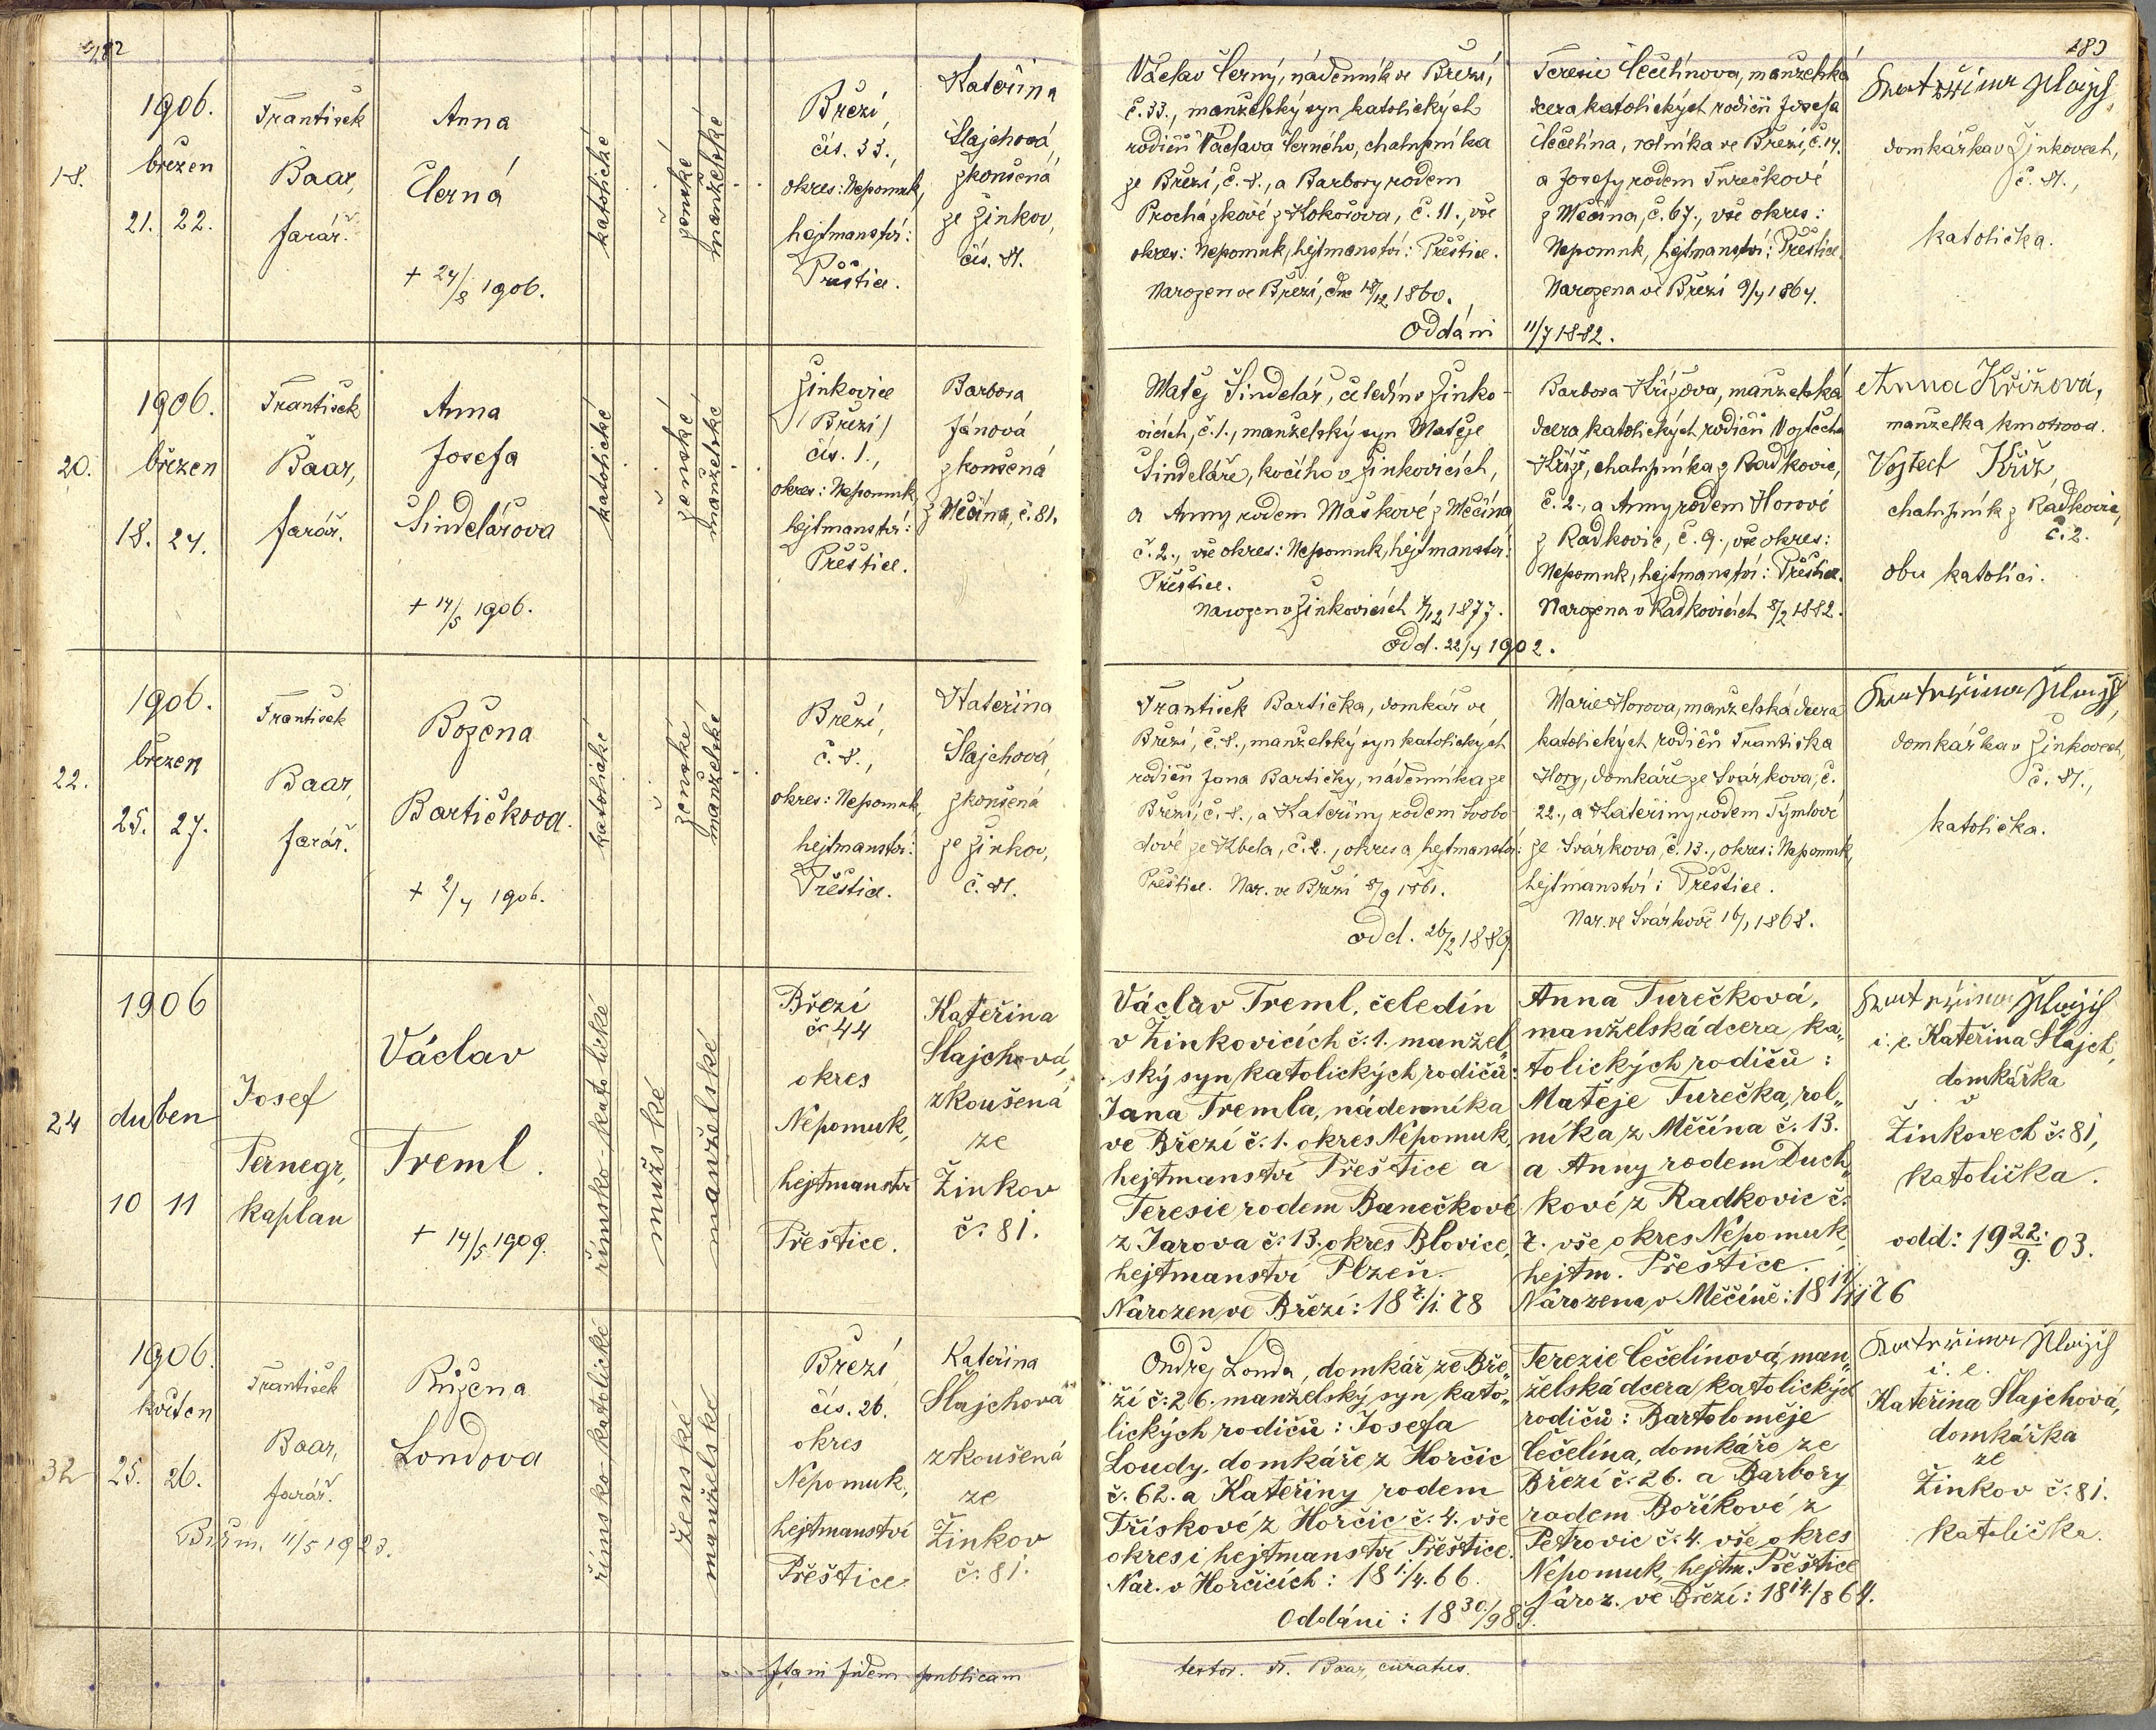 182
183
18.
1906.
březen
21. 22.
František
Baar,
farář.
Anna
Černá
+ 24/8 1906.
katolické
ženské
manželské
Březí,
čís. 33.,
okres: Nepomuk,
hejtmanství:
Přeštice.
Kateřina
Šlajchová,
zkoušená
ze Žinkov,
čís. 81.
Václav Černý, nádenník ve Březí,
č. 33., manželský syn katolických
rodičů Václava Černého, chalupníka
ze Březí, č. 8., a Barbory rodem
Procházkové z Kokořova, č. 11., vše
okres: Nepomuk, hejtmanství: Přeštice.
Narozen ve Březí, dne 18/12 1860.
Teresie Čečelínova, manželská
dcera katolických rodičů Josefa
Čečelína, rolníka ve Březí, č. 14.
a Josefy rodem Turečkové
z Měčína, č. 67., vše okres:
Nepomuk, hejtmanství: Přeštice.
Narozena ve Březí 9/4 1864.
Oddáni 11/7 1882.
domkářka v Žinkovech,
č. 81.,
katolička.
20.
1906.
březen
18. 24.
František
Baar,
farář.
Anna
Josefa
Šindelářova
+ 14/5 1906.
katolické
ženské
manželské
Žinkovice
/Březí/
čís. 1.,
okres: Nepomuk,
hejtmanství:
Přeštice.
Barbora
Jánová
zkoušená
z Měčína, č. 81.
Matěj Šindelář, čeledín v Žinko-
vicích, č. 1., manželský syn Matěje
Šindeláře, kočího v Žinkovicích,
a Anny rodem Maškové z Měčína
č. 2., vše okres: Nepomuk, hejtmanství:
Přeštice.
Narozen v Žinkovicích 4/12 1877.
Barbora Křížova, manželská
dcera katolických rodičů Vojtěcha
Kříže, chalupníka z Radkovic,
č. 2., a Anny rodem Horové
z Radkovic, č. 9., vše okres:
Nepomuk, hejtmanství: Přeštice.
Narozena v Radkovicích 8/2 1882.
odd. 22/4 1902.
Anna Křížová,
manželka kmotrova.
Vojtěch Kříž,
chalupník z Radkovic,
č. 2.
oba katolíci.
22.
1906.
březen
25. 27.
František
Baar,
farář.
Božena
Bartičkova.
+ 2/4 1906.
katolické
ženské
manželské
Březí,
č. 8.,
okres: Nepomuk,
hejtmanství:
Přeštice.
Kateřina
Šlajchová,
zkoušená
ze Žinkov,
č. 81.
František Bartička, domkář ve
Březí, č. 8., manželský syn katolických
rodičů Jana Bartičky, nádenníka ze
Březí, č. 8., a Kateřiny rodem Svobo-
dové ze Kbela, č. 2., okres a hejtmanství:
Přeštice. Nar. ve Březí 8/9 1861.
Marie Horova, manželská dcera
katolických rodičů Františka
Hory, domkáře ze Svárkova, č.
22., a Kateřiny rodem Týmlové
ze Svárkova, č. 13., okres: Nepomuk,
hejtmanství: Přeštice.
Nar. ve Svárkově 16/1 1868.
odd. 26/2 1889.
domkářka v Žinkovech,
č. 81.,
katolička.
24
1906
duben
10 11
Josef
Ternegr,
kaplan
Václav
Treml.
+ 14/5 1909.
římsko-katolické
mužské
manželské
Březí
č 44
okres
Nepomuk,
hejtmanství
Přeštice.
Kateřina
Šlajchová,
zkoušená
ze
Žinkov
č. 81.
Václav Treml, čeledín
v Žinkovicích č. 1. manžel„
ský syn katolických rodičů:
Jana Tremla, nádenníka
ve Březí č. 1. okres Nepomuk,
hejtmanství Přeštice a
Teresie rodem Banečkové
z Jarova č. 13. okres Blovice,
hejtmanství Plzeň.
Narozen ve Březí: 18 7/1. 78
Anna Turečková,
manželská dcera ka„
tolických rodičů:
Matěje Turečka, rol„
níka z Měčína č. 13.
a Anny rodem Duch„
kové z Radkovic č.
7. vše okres Nepomuk,
hejtm. Přeštice.
Narozena v Měčíně: 18 11/11 76
i. e. Kateřina Šlajch,
domkářka
v
Žinkovech č. 81,
katolička.
odd: 19 22./9. 03.
32
1906.
květen
25. 26.
František
Baar,
farář.
Růžena
Londova
Biřm. 11/5 1923.
římsko-katolické
ženské
manželské
Březí,
čís. 26.
okres
Nepomuk,
hejtmanství
Přeštice
Kateřina
Šlajchová
zkoušená
ze
Žinkov
č. 81.
Ondřej Londa, domkář ze Bře„
zí č. 26. manželský syn kato„
lických rodičů: Josefa
Loudy, domkáře z Horčic
č. 62. a Kateřiny rodem
Třískové z Horčic č. 4. vše
okres i hejtmanství Přeštice.
Nar. v Horčicích: 18 1./4. 66.
Terezie Čečelínová, man„
želská dcera katolických
rodičů: Bartoloměje
Čečelína, domkáře ze
Březí č. 26. a Barbory
rodem Boříkové z
Petrovic č. 4. vše okres
Nepomuk, hejtm. Přeštice
Naroz. ve Březí: 18 14./8 64.
Oddáni: 18 30./9 89.
i. e.
Kateřina Šlajchová,
domkářka
ze
Žinkov č. 81.
katolička.
fidem publicam
testor. Fr. Baar, curatus.